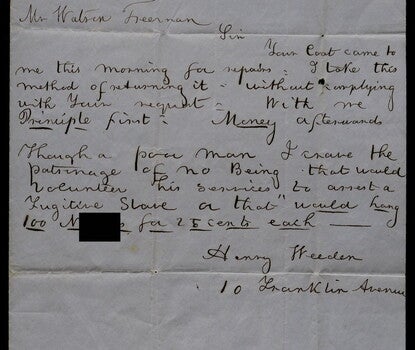 Mr Watson Freeman
Sir
Your Coat came to
me this morning for repairs - I take this
method of returning it - without complying
with Your request - With me
Principle first - Money afterwards
Though a poor man I crave the
patronage of no Being that would
volunteer his services to arrest a
Fugitive Slave or that "would hang
100 N s for 25 cents each
Henry Weeden
10 Franklin Avenue